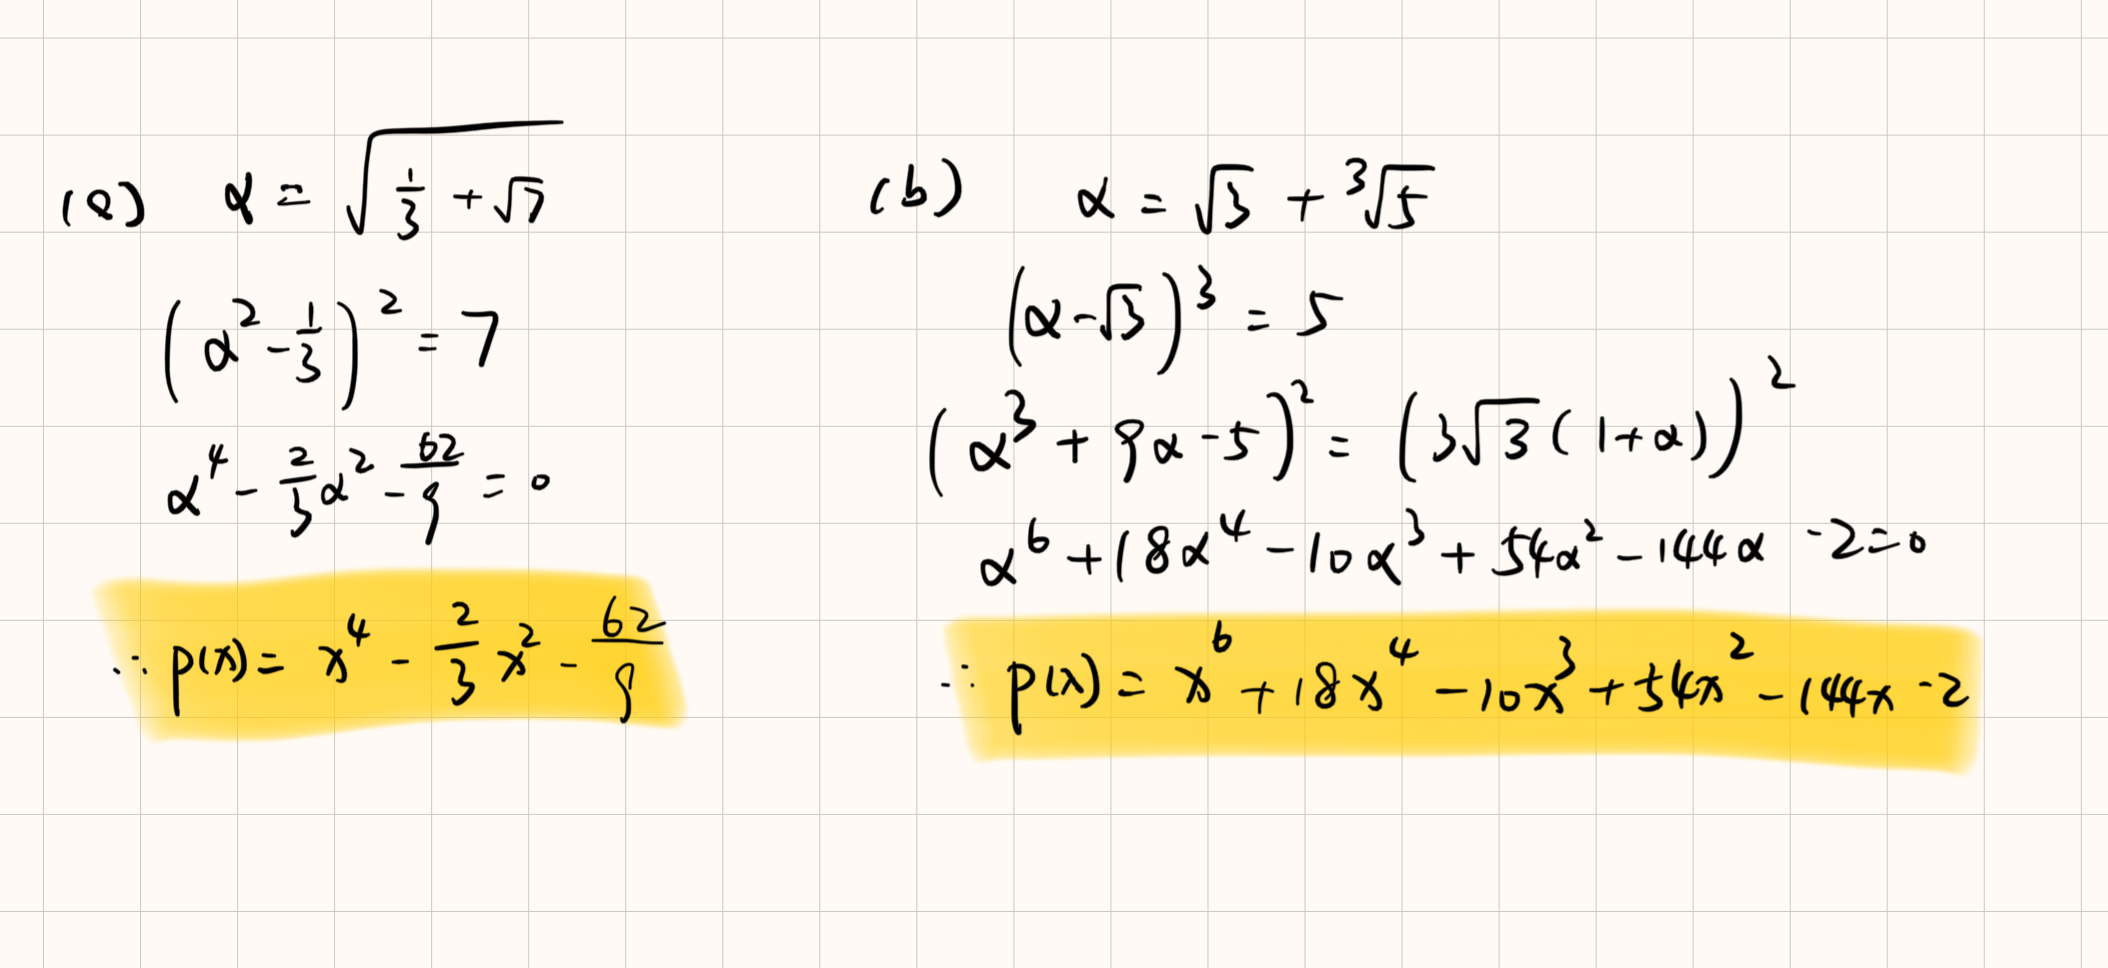 (a) α = √(1/3 + √7)
(α² - 1/3)² = 7
α⁴ - 2/3 α² - 62/9 = 0
∴ p(x) = x⁴ - 2/3 x² - 62/9
(b) α = √3 + ³√5
(α - √3)³ = 5
(α³ + 9α - 5)² = (3√3(1+α))²
α⁶ + 18α⁴ - 10α³ + 54α² - 144α - 2 = 0
∴ p(x) = x⁶ + 18x⁴ - 10x³ + 54x² - 144x - 2